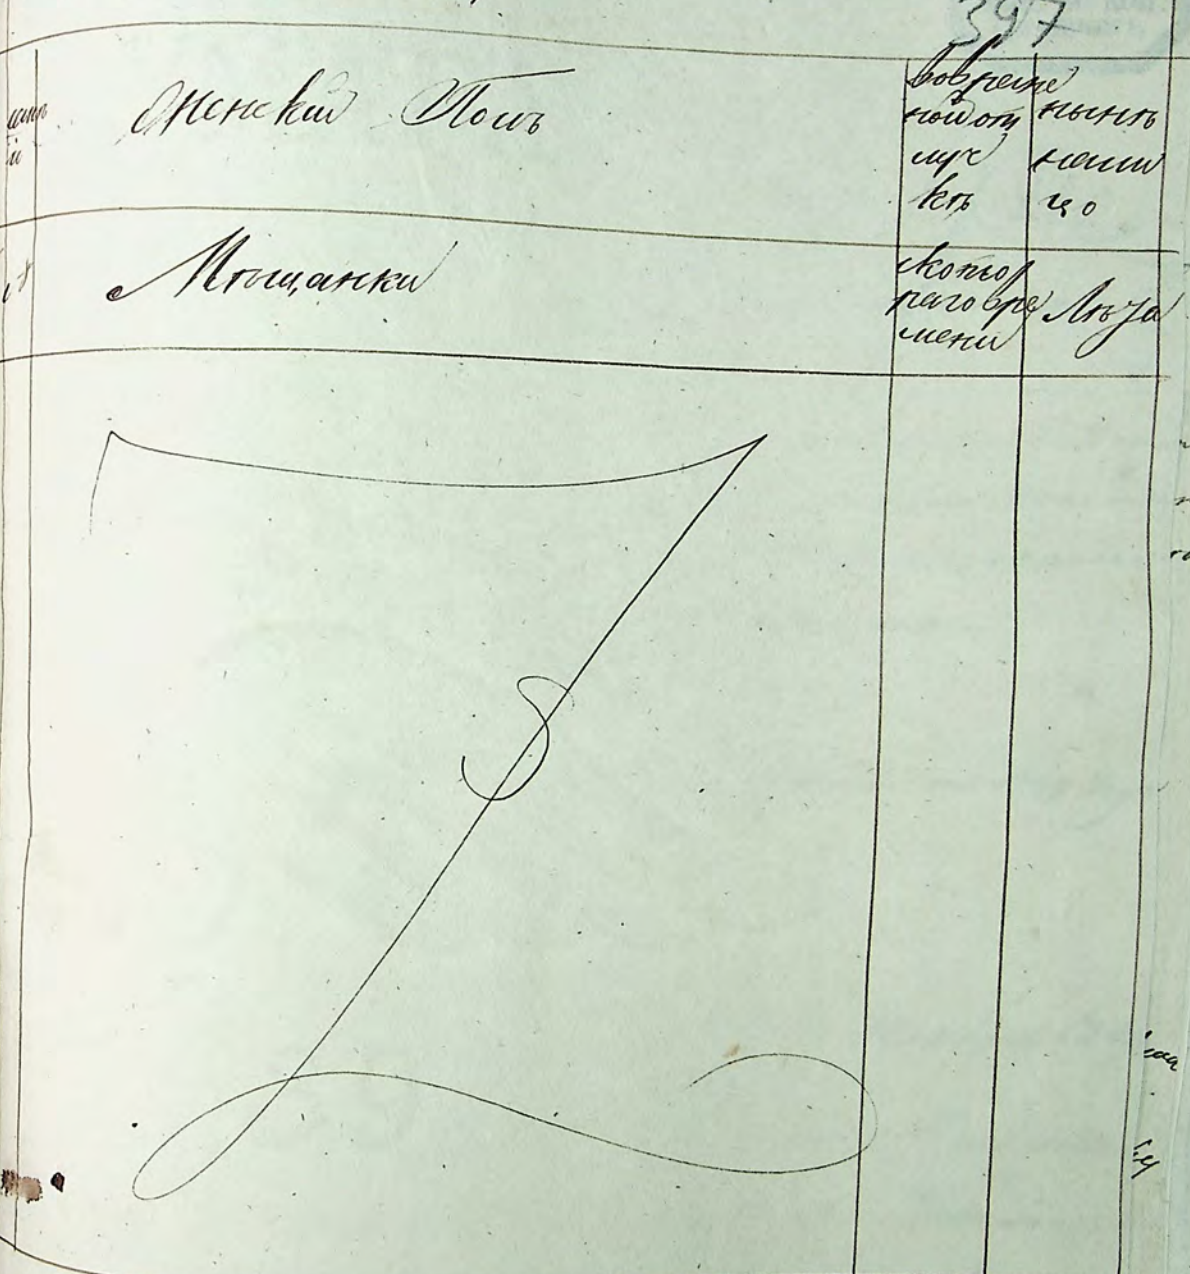 397
Женский Полъ
вовремен
ной отлу
чкѣ
нынѣ
на ли
цо
Мѣщанки
С котор
раго вре
мени
Лѣта